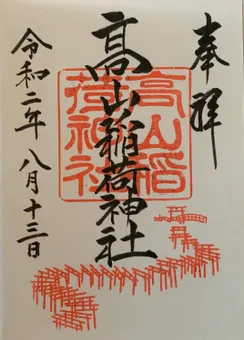 奉拝
髙山稲荷神社
高山稲荷神社
令和二年八月十三日